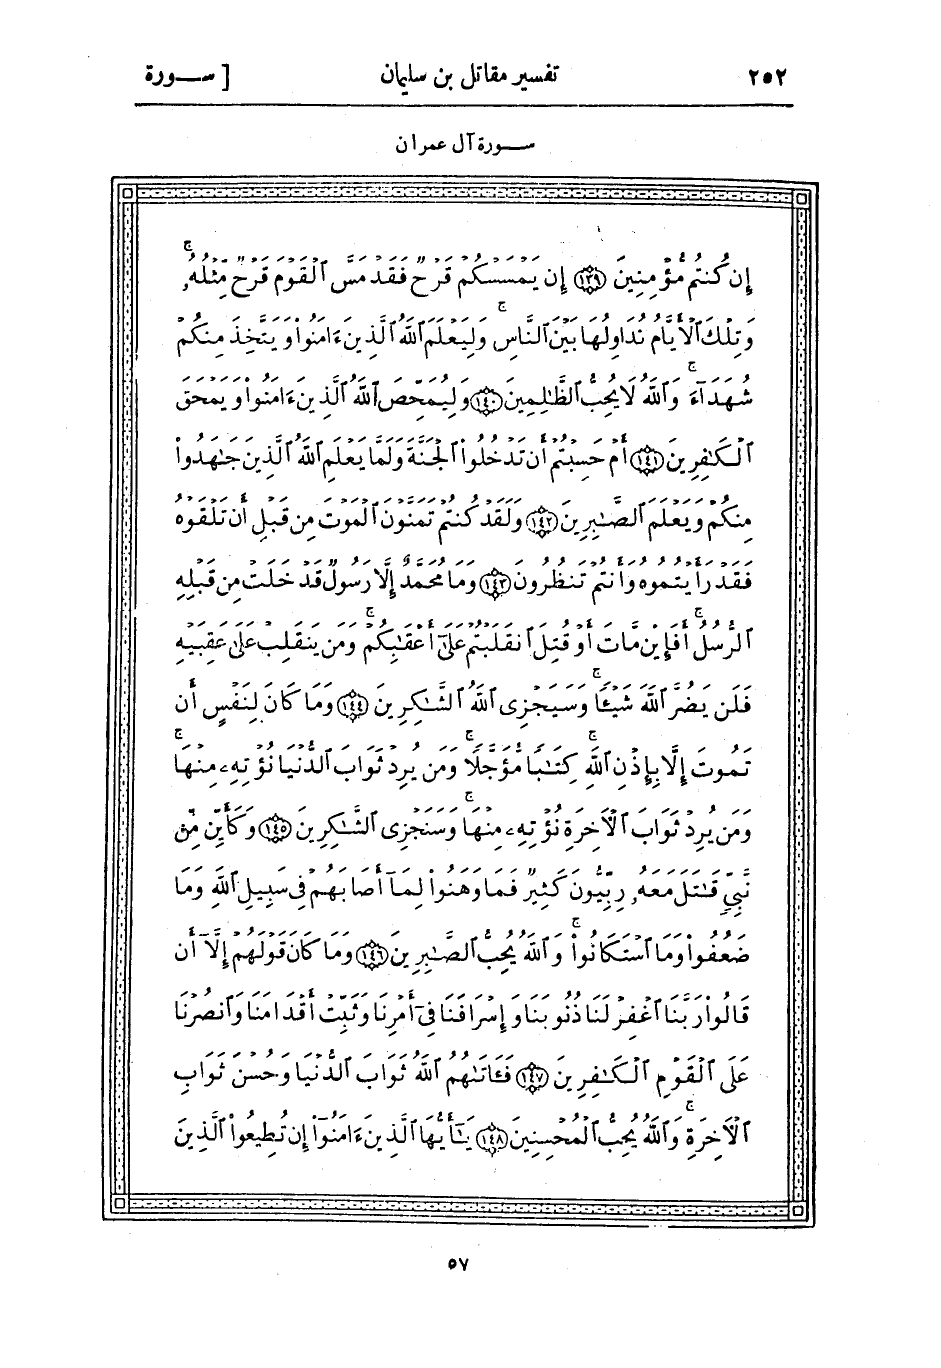 ٢٥٢ تفسير مقاتل بن سليمان [ ســورة
ســورة آل عمران
إِن كُنتُم مُّؤْمِنِينَ ١٣٩ إِن يَمْسَسْكُمْ قَرْحٌ فَقَدْ مَسَّ ٱلْقَوْمَ قَرْحٌ مِّثْلُهُۥ ۚ
وَتِلْكَ ٱلْأَيَّامُ نُدَاوِلُهَا بَيْنَ ٱلنَّاسِ ۚ وَلِيَعْلَمَ ٱللَّهُ ٱلَّذِينَ ءَامَنُوا۟ وَيَتَّخِذَ مِنكُمْ
شُهَدَآءَ ۚ وَٱللَّهُ لَا يُحِبُّ ٱلظَّٰلِمِينَ ١٤٠ وَلِيُمَحِّصَ ٱللَّهُ ٱلَّذِينَ ءَامَنُوا۟ وَيَمْحَقَ
ٱلْكَٰفِرِينَ ١٤١ أَمْ حَسِبْتُمْ أَن تَدْخُلُوا۟ ٱلْجَنَّةَ وَلَمَّا يَعْلَمِ ٱللَّهُ ٱلَّذِينَ جَٰهَدُوا۟
مِنكُمْ وَيَعْلَمَ ٱلصَّٰبِرِينَ ١٤٢ وَلَقَدْ كُنتُمْ تَمَنَّوْنَ ٱلْمَوْتَ مِن قَبْلِ أَن تَلْقَوْهُ
فَقَدْ رَأَيْتُمُوهُ وَأَنتُمْ تَنظُرُونَ ١٤٣ وَمَا مُحَمَّدٌ إِلَّا رَسُولٌ قَدْ خَلَتْ مِن قَبْلِهِ
ٱلرُّسُلُ ۚ أَفَإِي۟ن مَّاتَ أَوْ قُتِلَ ٱنقَلَبْتُمْ عَلَىٰٓ أَعْقَٰبِكُمْ ۚ وَمَن يَنقَلِبْ عَلَىٰ عَقِبَيْهِ
فَلَن يَضُرَّ ٱللَّهَ شَيْـًٔا ۚ وَسَيَجْزِى ٱللَّهُ ٱلشَّٰكِرِينَ ١٤٤ وَمَا كَانَ لِنَفْسٍ أَن
تَمُوتَ إِلَّا بِإِذْنِ ٱللَّهِ ۚ كِتَٰبًا مُّؤَجَّلًا ۚ وَمَن يُرِدْ ثَوَابَ ٱلدُّنْيَا نُؤْتِهِۦ مِنْهَا ۚ
وَمَن يُرِدْ ثَوَابَ ٱلْأَخِرَةِ نُؤْتِهِۦ مِنْهَا ۚ وَسَنَجْزِى ٱلشَّٰكِرِينَ ١٤٥ وَكَأَيِّن مِّن
نَّبِىٍّ قَٰتَلَ مَعَهُۥ رِبِّيُّونَ كَثِيرٌ فَمَا وَهَنُوا۟ لِمَآ أَصَابَهُمْ فِى سَبِيلِ ٱللَّهِ وَمَا
ضَعُفُوا۟ وَمَا ٱسْتَكَانُوا۟ ۚ وَٱللَّهُ يُحِبُّ ٱلصَّٰبِرِينَ ١٤٦ وَمَا كَانَ قَوْلَهُمْ إِلَّآ أَن
قَالُوا۟ رَبَّنَا ٱغْفِرْ لَنَا ذُنُوبَنَا وَإِسْرَافَنَا فِىٓ أَمْرِنَا وَثَبِّتْ أَقْدَامَنَا وَٱنصُرْنَا
عَلَى ٱلْقَوْمِ ٱلْكَٰفِرِينَ ١٤٧ فَـَٔاتَىٰهُمُ ٱللَّهُ ثَوَابَ ٱلدُّنْيَا وَحُسْنَ ثَوَابِ
ٱلْأَخِرَةِ ۚ وَٱللَّهُ يُحِبُّ ٱلْمُحْسِنِينَ ١٤٨ يَٰٓأَيُّهَا ٱلَّذِينَ ءَامَنُوٓا۟ إِن تُطِيعُوا۟ ٱلَّذِينَ
٥٧